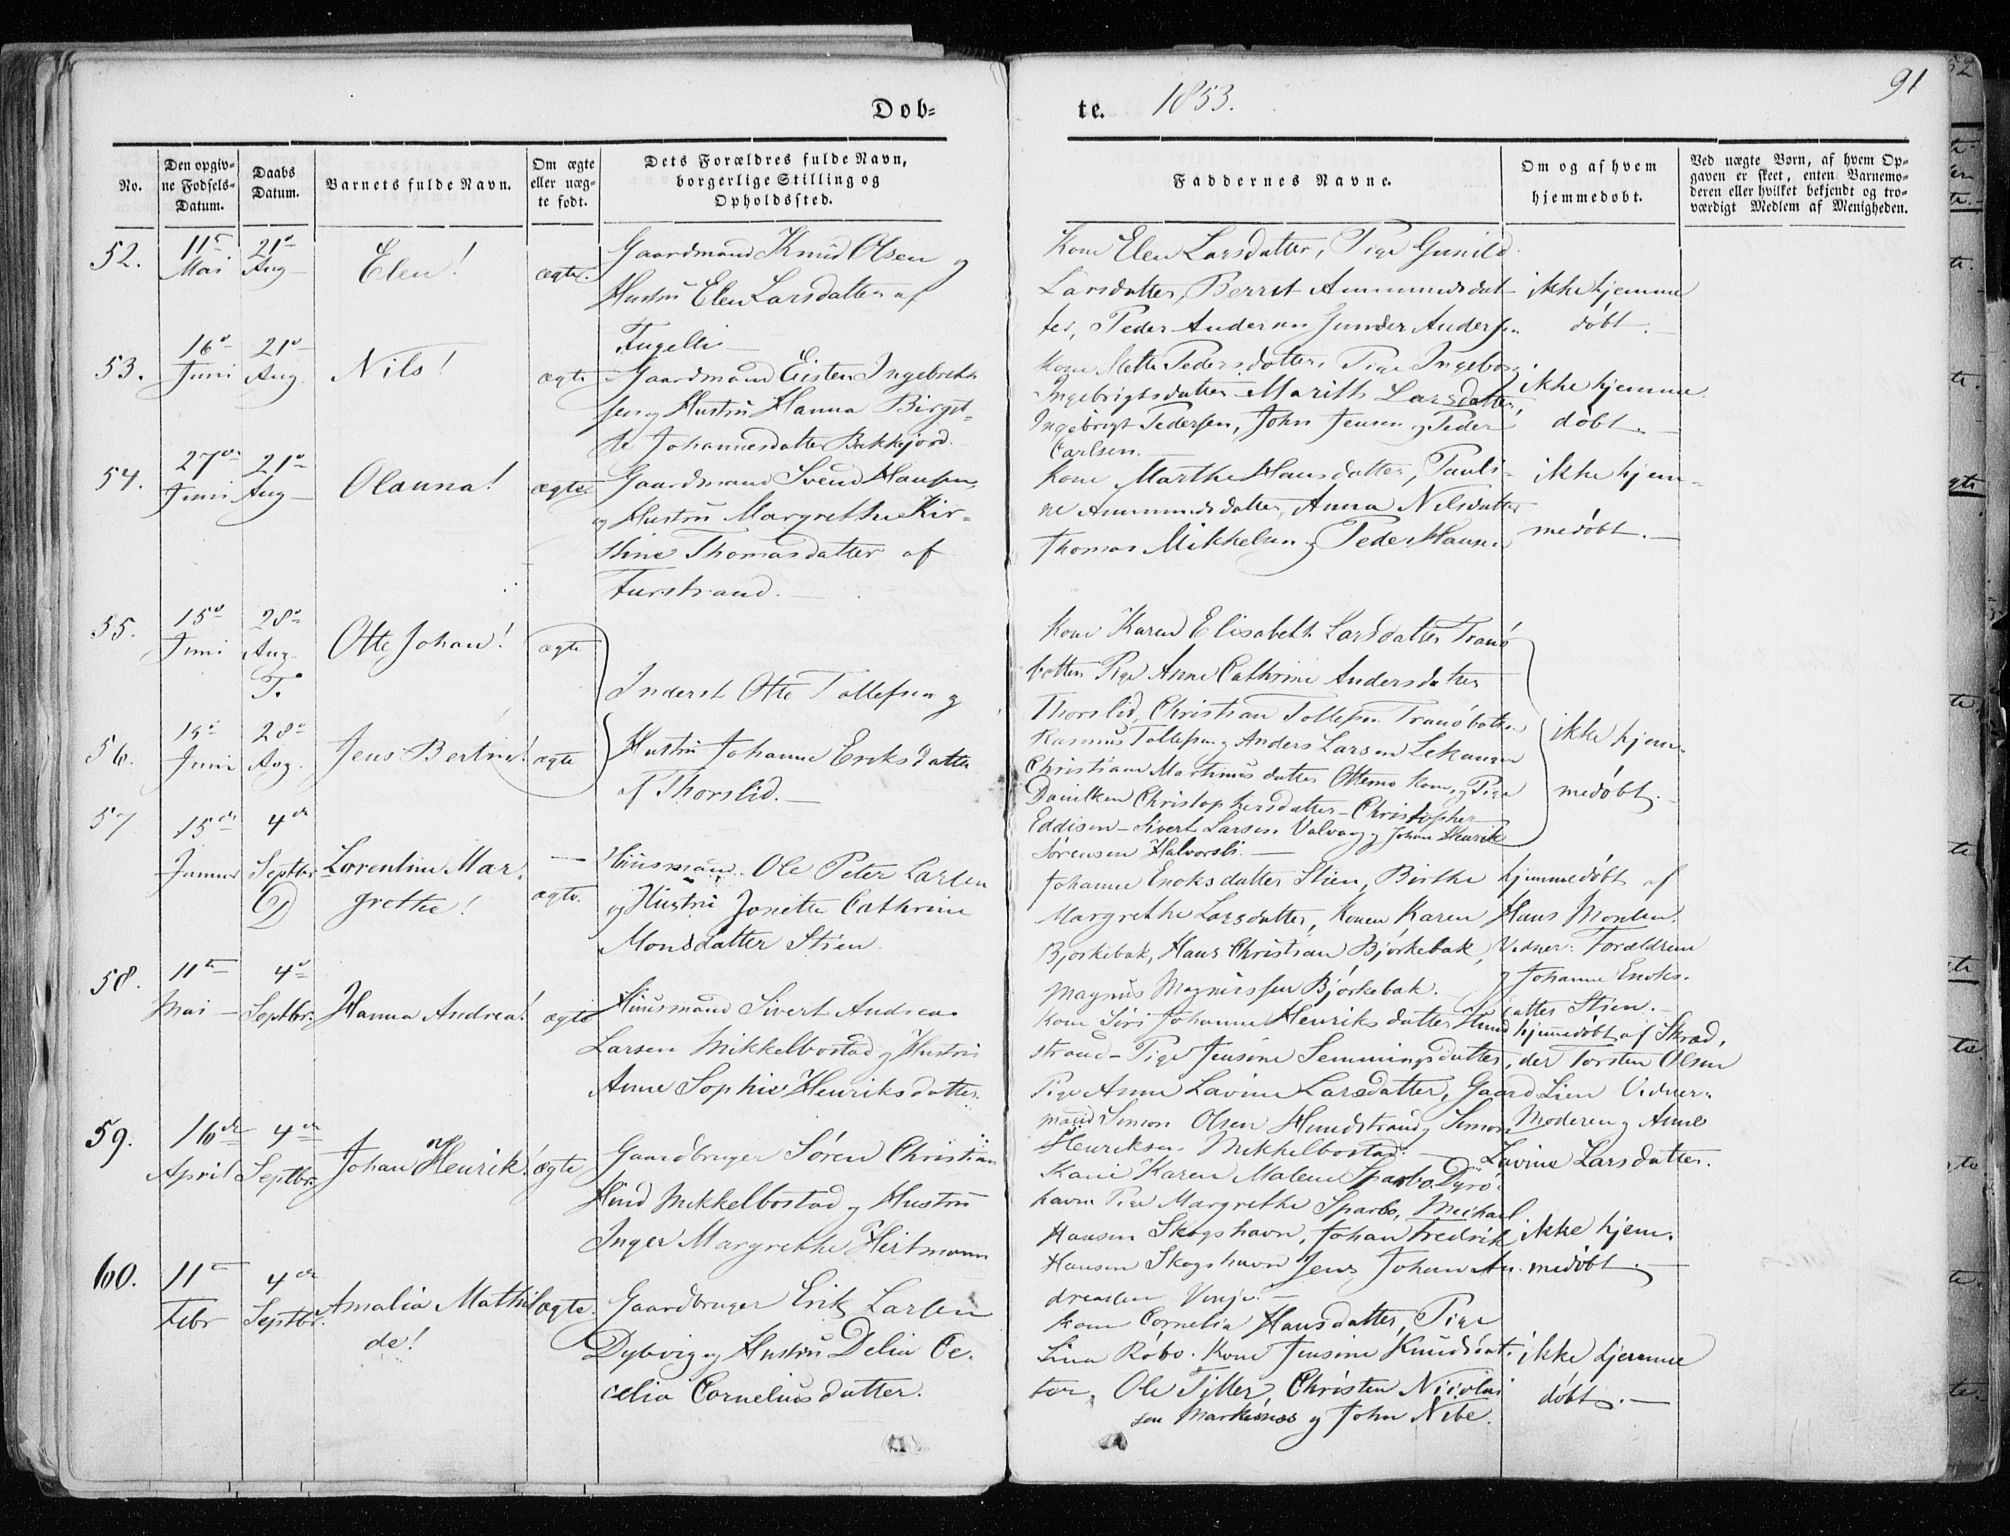 Døb-
te. 1853.
91
No.
Den opgiv-
ne Fødsels-
Datum.
Daabs
Datum.
Barnets fulde Navn.
Om ægte
eller uæg-
te født.
Dets Forældres fulde Navn,
borgerlige Stilling og
Opholdssted.
Faddernes Navne.
Om og af hvem
hjemmedøbt.
Ved uægte Børn, af hvem Op-
gaven er skeet, enten Barnemo-
deren eller hvilket bekjendt og tro-
værdigt Medlem af Menigheden.
52.
11te
Mai
21de
Aug
Elen!
ægte.
Gaardmand Knud Olsen og
Hustru Elen Larsdatter af
Kone Elen Larsdatter, Pige Gunild
Larsdatter, Berret Ammundsdat-
ter, Peder Andersen Gunder Andersen
ikke hjemme
døbt.
53.
16de
Juni
21de
Aug.
Nils!
ægte
Gaardmand Eisten Ingebrigt-
sen og Hustru Hanna Birgit-
te Johannesdatter Bakkejord.
Kone Mette Pedersdatter, Pige Ingeborg
Ingebrigtsdatter Marith Larsdatter,
Ingebrigt Pedersen, John Jensen og Peder
Carlsen.
ikke hjemme
døbt.
54.
27de
Juni
21de
Aug
Olauna!
ægte
Gaardmand Svend Hansen
og Hustru Margrethe Kir-
stine Thomasdatter af
Furstrand.
Kone Marthe Hansdatter, Pauli-
ne Ammundsdatter, Anna Nilsdatter
Thomas Mikkelsen og Peder Hansen
ikke hjem-
medøbt.
55.
15de
Juni
28de
Aug.
T.
Otte Johan!
ægte
Inderst Otte Tollefsen og
Kone Karen Elisabeth Larsdatter Tranø
botten Pige Anne Cathrine Andersdatter
Thorslid, Christian Tollefsen Tranøbotten
Rasmus Tollefsen og Anders Larsen Lekangen
56.
15de
Juni
28de
Aug.
Jens Bertin!
ægte
Hustru Johanne Eriksdatter
af Thorslid.
Christiane Martinusdatter Ottemo Kone, og Pige
Christophersdatter - Christopher
Eddisen - Sivert Larsen Valvaag og Johan Henrik
Sørensen Halvorsli.
ikke hjem-
medøbt.
57
15de
Januar
4de
Septbr.
Lorentine Mar-
grethe!
ægte.
Huusmand Ole Peter Larsen
og Hustru Jonette Cathrine
Monsdatter Stien.
Johanne Enoksdatter Stien, Birthe
Margrethe Larsdatter, Konen Karen
Bjorkebak, Hans Christian Bjorkebak,
Magnus Magnussen Bjørkebak.
hjemmedøbt af
Hans Monsen.
Vidner: Forældrene
og Johanne Enoks-
datter Stien.
58.
11te
Mai
4de
Septbr.
Hanna Andrea!
ægte
Huusmand Sivert Andreas
Larsen Mikkelbostad og Hustru
Anne Sophie Henriksdatter.
Kone Siri Johanne Henriksdatter Hund
strand - Pige Jensine Semmingsdatter,
Pige Anne Lavine Larsdatter, Gaard
mand Simon Olsen Hundstrand og Simon
Henriksen Mikkelbostad.
hjemmedøbt af Skræd,
der Torsten Olsen
Lien Vidner.
Moderen og Anne
Lavine Larsdatter.
59.
16de
April
4de
Septbr.
Johan Henrik!
ægte
Gaardbruger Søren Christian
Hind Mikkelbostad og Hustru
Inger Margrethe Hertmann
Kone Karen Malene Sparbo Dyrø-
havn Pige Margrethe Sparbo, Michael
Hansen Skogshavn, Johan Fredrik
Hansen Skogshavn Jens Johan An-
dreasen Vinje.
ikke hjem-
medøbt.
60.
11te
Febr
4de
Septbr.
Amalia Mathil
de!
ægte.
Gaardbruger Erik Larsen
Dybvig og Hustru Delia Ce-
celia Corneliusdatter.
Kone Cornelia Hansdatter, Pige
Lina Røbo. Kone Jensine Knudsdat-
ter, Ole Tiller, Christen Nicolai
sen Markenes og John Nibe.
ikke hjemme
døbt.